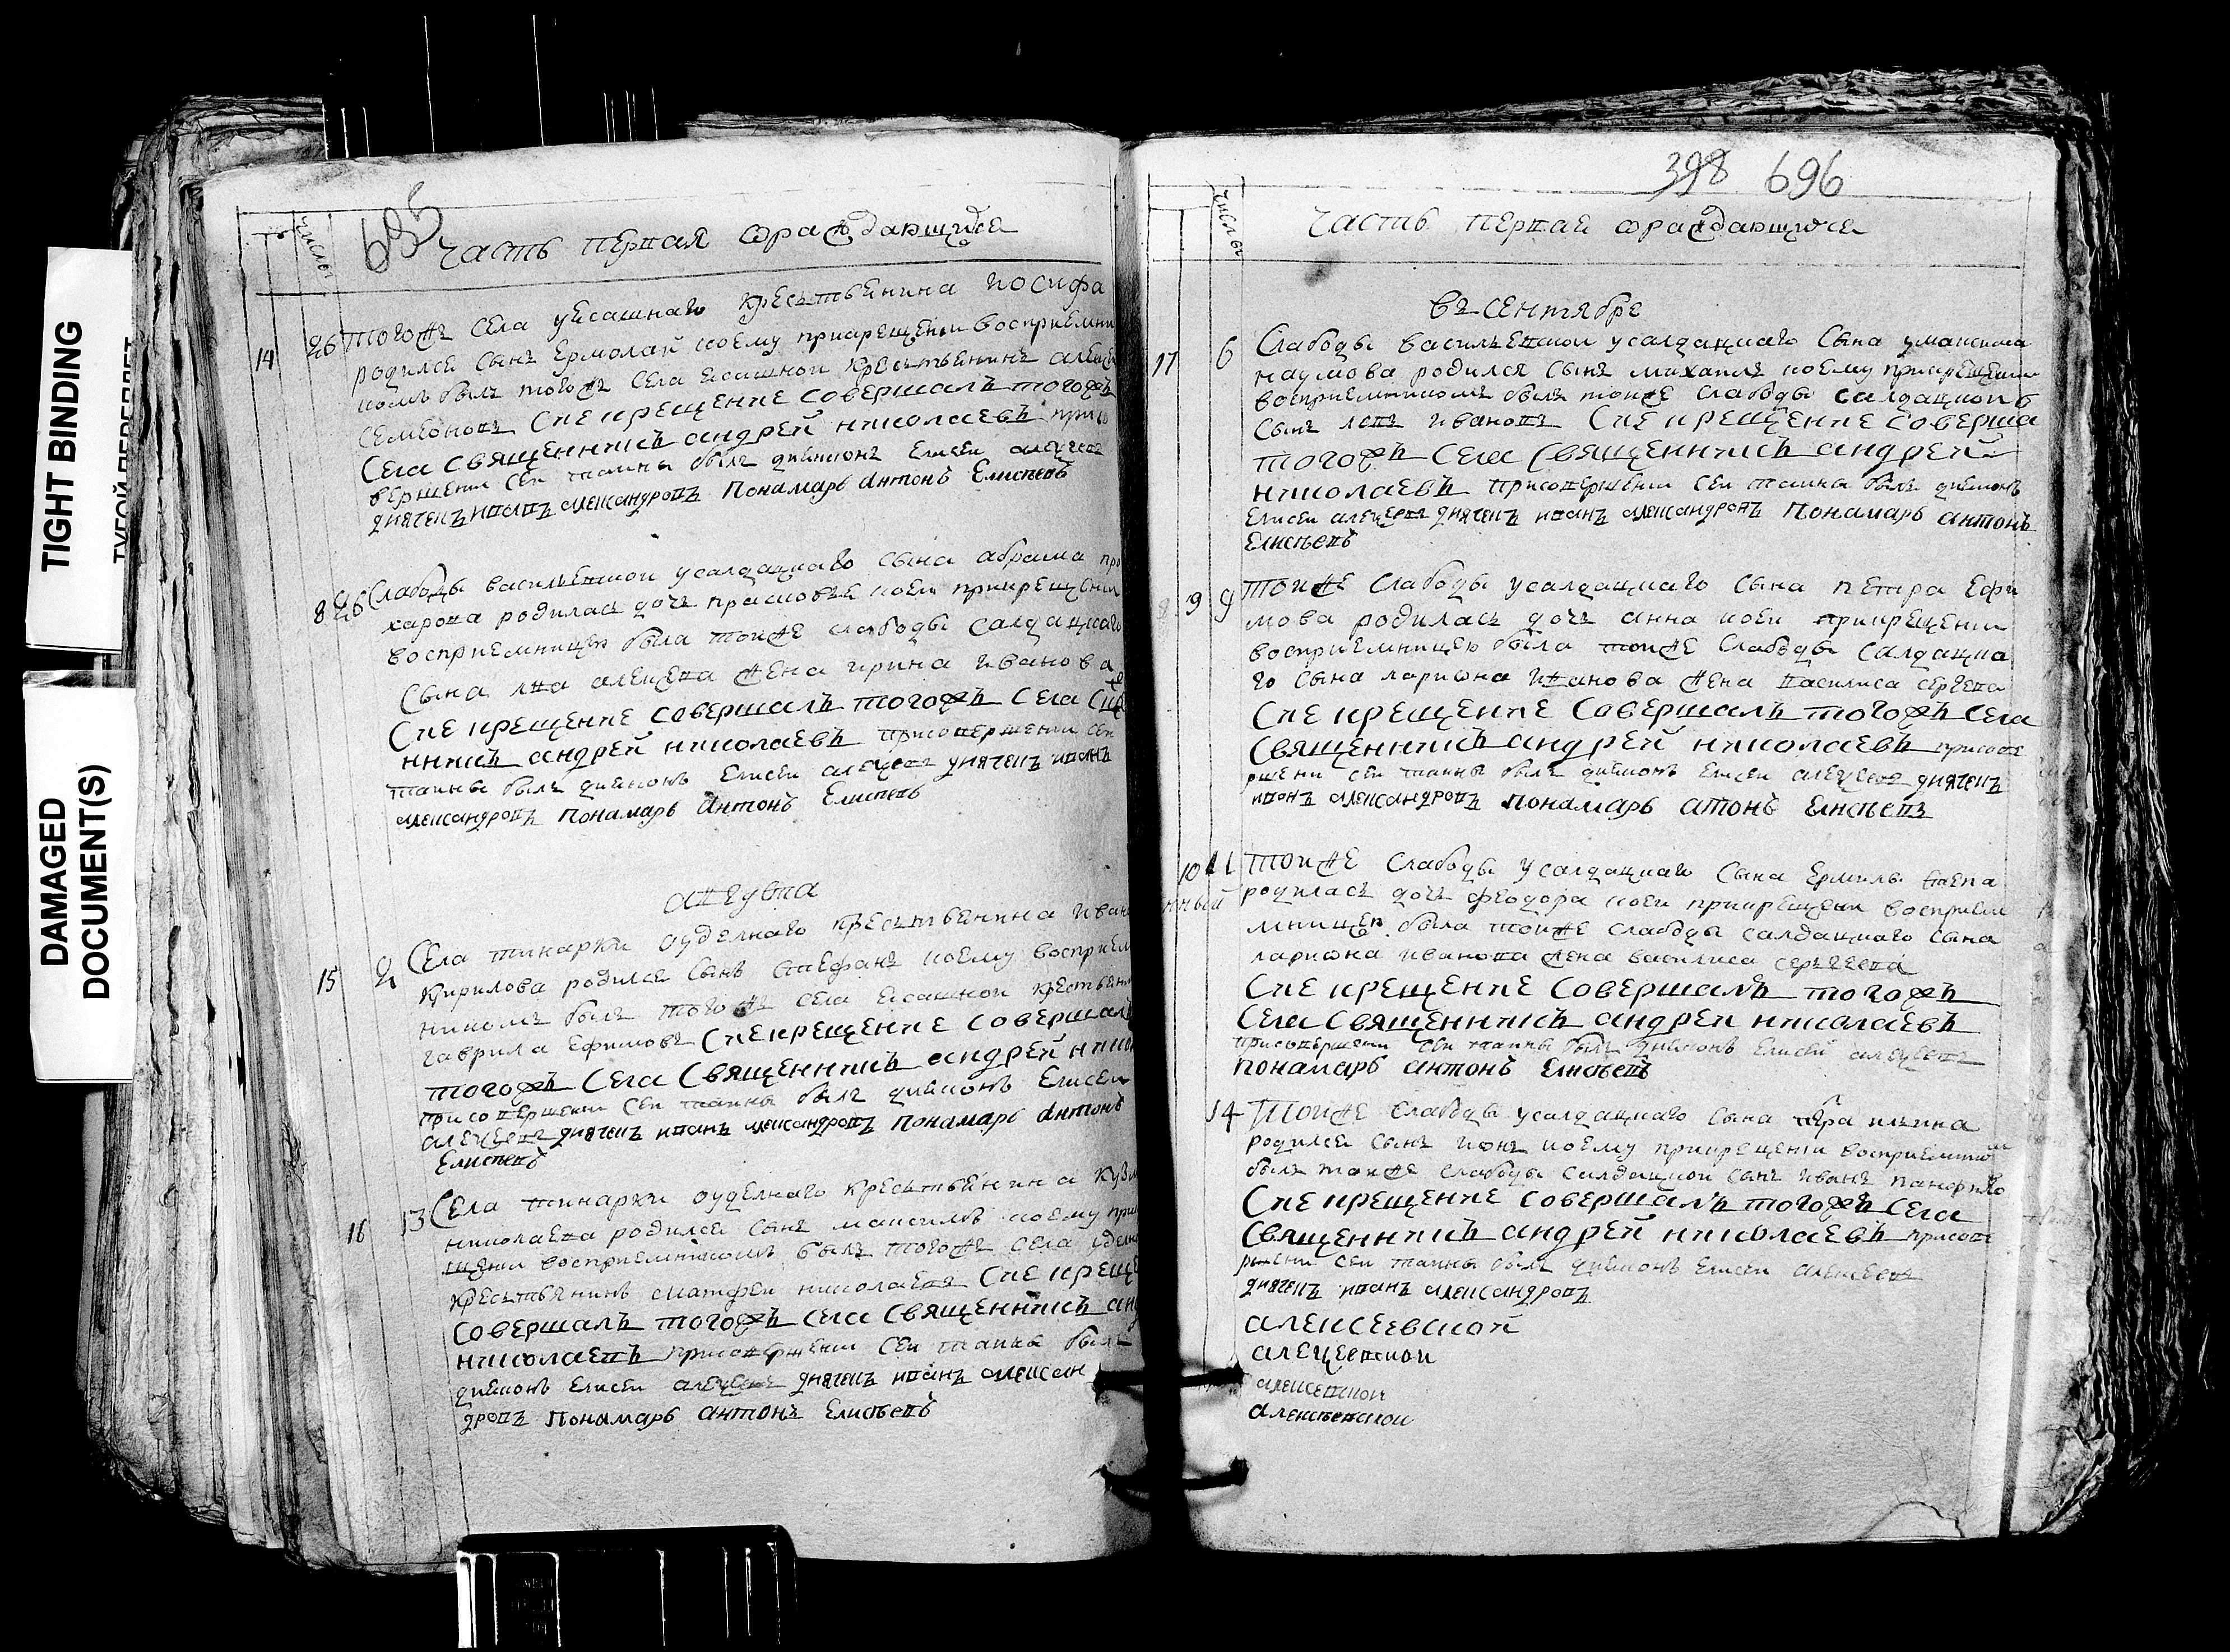 TIGHT BINDING
ТУГОЙ ПЕРЕПЛЕТ
DAMAGED
DOCUMENT(S)
числы
695
часть первая ѡраждающихся
14 26 тогожъ села ясашнаго крестьянина иосифа
родился сынъ ермолай коему прикрещени восприемни
комъ былъ тогожъ села ясашной крестьянинъ алексеи
семионовъ Сие крещение совершалъ тогожъ
села священникъ андрей николаевъ присо
вершени сеи таины былъ диѧконъ Елисеи алеѯеевъ
диячекъ иванъ александровъ Понамарь антонъ Елисѣевъ
8 26 Слабоды василевской усалдацкаго сына абрама про
харова родилась дочь прасковѣя коеи прикрещени
восприемницею была тоиже слабоды салдацкаго
сына лва алеѯеева жена ирина иванова
Сие крещение совершалъ тогожъ села Свѧще
нникъ андрей николаевъ присовершени сеи
таины былъ диѧконъ Елисеи алеѯеевъ диячекъ иванъ
александровъ понамарь антонъ Елисѣевъ
августа
15 2 Села тинарки ѹделнаго крестьянина ивана
кирилова родился сынъ стефанъ коему восприем
никомъ былъ тогожъ села ясашной крестьянинъ
гаврила ефимовъ Сие крещение совершалъ
тогожъ Села Священникъ андрей нико
присовершени сеи таины былъ диѧконъ Елисеи
алеѯеевъ диячекъ иванъ александровъ понамарь антонъ
Елисѣевъ
16 13 Села тинарки ѹделнаго крестьянина кузмы
николаева родился сынъ максимъ коему прикре
щени восприемникомъ былъ тогоже села уделной
крестьянинъ матфеи николаевъ Сие креще
совершалъ тогожъ села священникъ анд
николаевъ присовершени сеи таины былъ
диѧконъ Елисеи алеѯеевъ диячекъ иванъ алексан
дровъ Понамарь антонъ Елисѣевъ
398 696
числы
часть первая ѡраждающихся
въ сентябре
17 6 Слабоды василевской усалдацкаго сына умаксима
наумова родился сынъ михаилъ коему прикрещени
восприемникомъ былъ тоиже слабоды салдацкой
сынъ левъ ивановъ Сие крещение соверша
тогожъ села Священникъ андрей
николаевъ присовершени сеи таины былъ диѧконъ
Елисеи алеѯеевъ диячекъ иванъ александровъ Понамарь антонъ
Елисѣевъ
9 9 тоиже слабоды усалдацкаго сына петра Ефи
мова родилась дочь анна коеи прикрещени
восприемницею была тоиже слабоды салдацка
го сына лариѡна иванова жена василиса сергеева
Сие крещение Совершалъ тогожъ села
Священникъ андрей николаевъ присове
ршени сеи таины былъ диѧконъ Елисеи алеѯеевъ диячекъ
иванъ александровъ понамарь атонъ Елисѣевъ
10 11 тоиже слабоды усалдацкаго сына Ермилы
родилась дочь феодора коеи прикрещени восприем
мницею была тоиже слабоды салдацкаго сына
лариѡна иванова жена василиса сергеева
Сие крещение Совершалъ тогожъ
Села Священникъ андрей николаевъ
присовершени сеи таины былъ диѧконъ Елисей алеѯеевъ
понамарь антонъ Елисѣевъ
14 тоиже слабоды усалдацкаго сына петра илина
родился сынъ иѡнъ коему прикрещени восприемником
былъ тоиже слабоды салдацкой сынъ иванъ панфило
Сие крещение совершалъ тогожъ села
Священникъ андрей николаевъ присове
ршени сеи таины былъ диѧконъ Елисеи алексеевъ
диячекъ иванъ александровъ
алексеевской
алеѯеевской
алексевской
алексѣевской